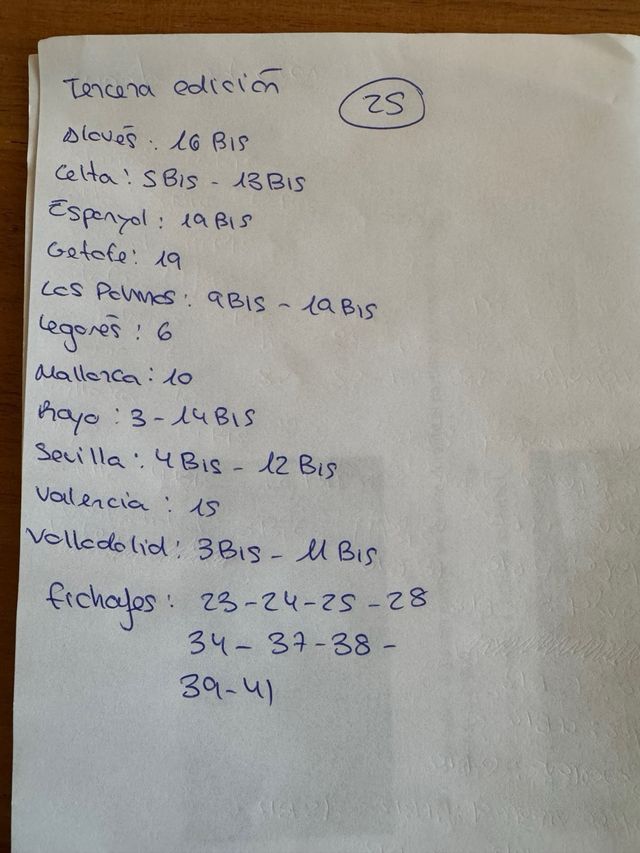 Tercera edición
25
Alavés: 16 BIS
Celta: 5 BIS - 13 BIS
Espanyol: 19 BIS
Getafe: 19
Las Palmas: 9 BIS - 19 BIS
Leganés: 6
Mallorca: 10
Rayo: 3 - 14 BIS
Sevilla: 4 BIS - 12 BIS
Valencia: 15
Valladolid: 3 BIS - 11 BIS
Fichajes: 23 - 24 - 25 - 28
34 - 37 - 38 -
39 - 41